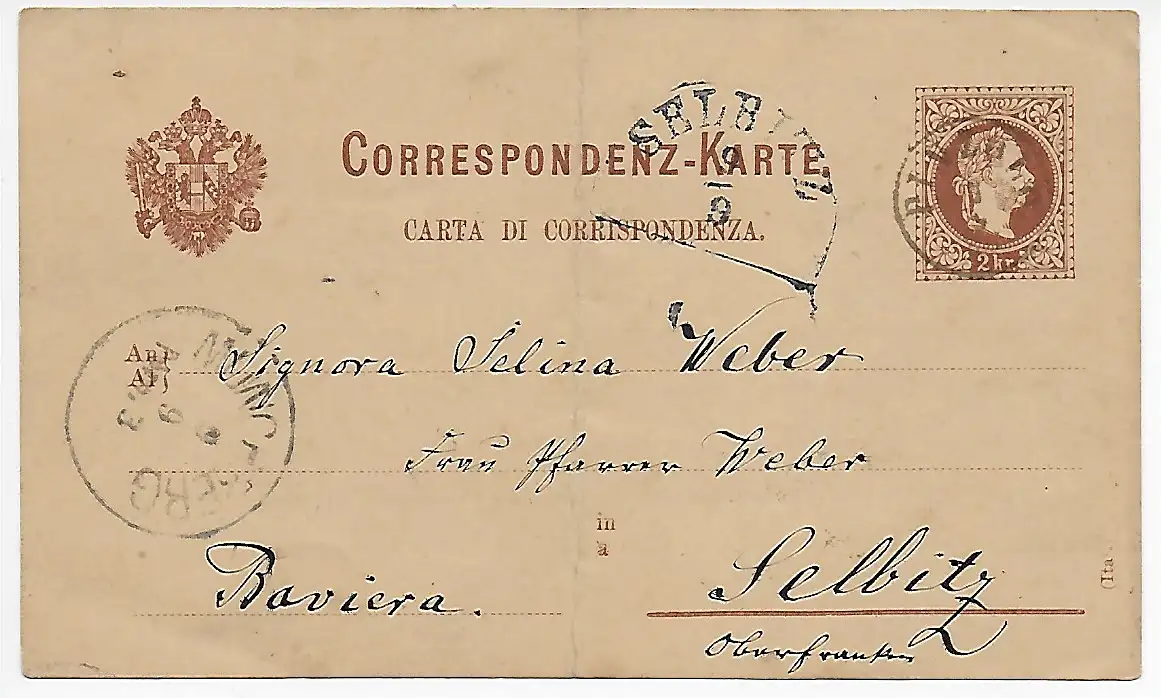 CORRESPONDENZ-KARTE
CARTA DI CORRISPONDENZA.
SELBITZ
9
9
2 kr.
An
A
Signora Selina Weber
Frau Pfarrer Weber
in
a
Selbitz
Baviera.
Oberfranken
(Ita